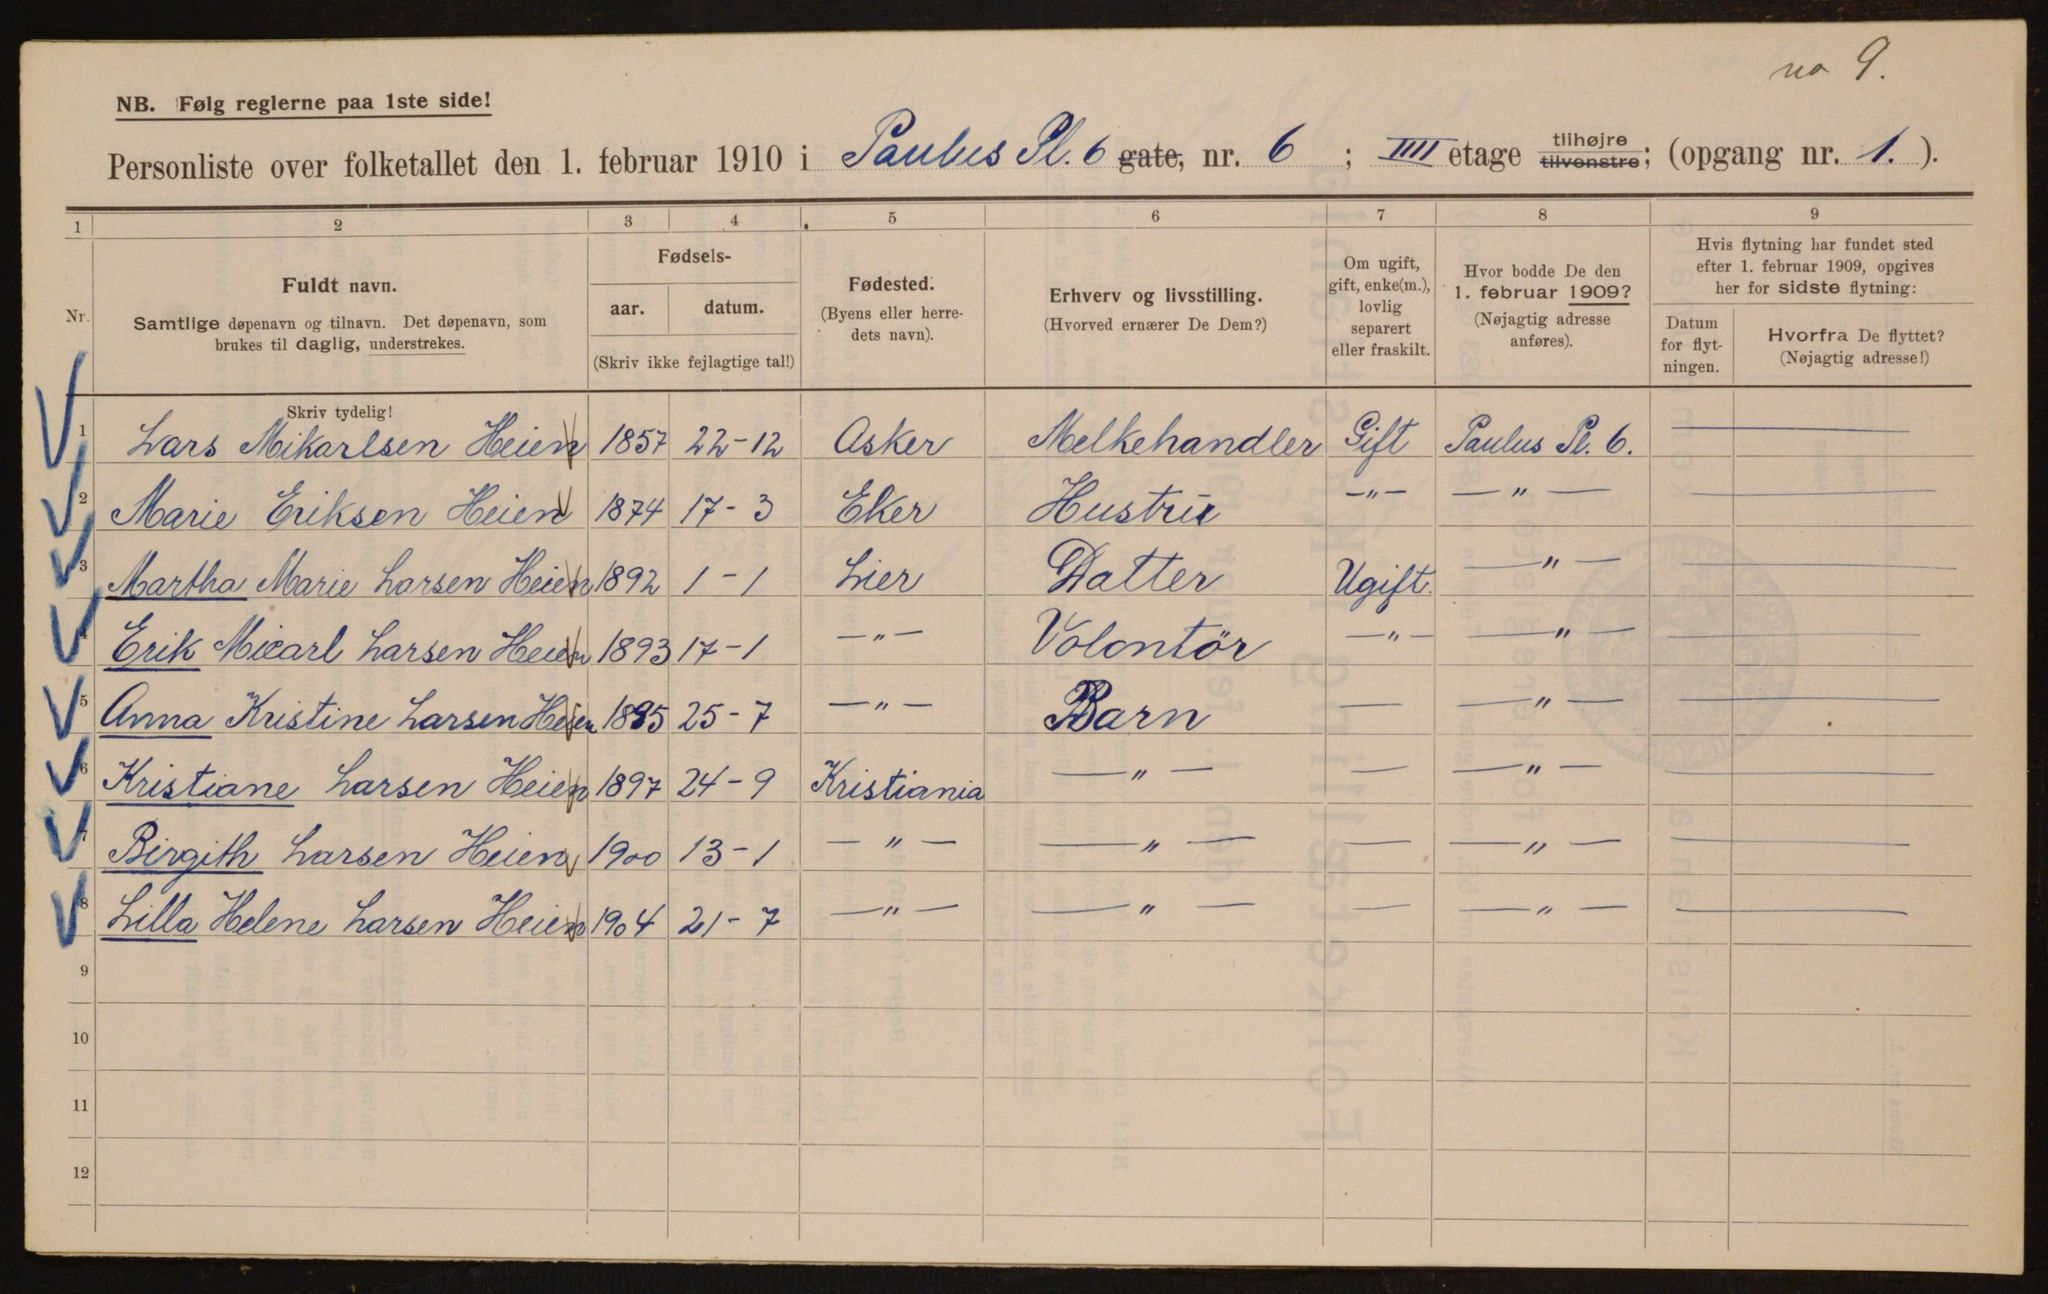 no 9.
NB. Følg reglerne paa 1ste side!
Personliste over folketallet den 1. februar 1910 i Paulus Pl. 6 gate, nr. 6 ; IIII etage tilhøjre tilvenstre; (opgang nr. 1. ).
1 2 3 4 5 6 7 8 9
Nr. Fuldt navn. Samtlige døpenavn og tilnavn. Det døpenavn, som brukes til daglig, understrekes.
Fødsels- aar. datum. (Skriv ikke fejlagtige tal!)
Fødested. (Byens eller herredets navn).
Erhverv og livsstilling. (Hvorved ernærer De Dem?)
Om ugift, gift, enke(m.), lovlig separert eller fraskilt.
Hvor bodde De den 1. februar 1909? (Nøjagtig adresse anføres).
Hvis flytning har fundet sted efter 1. februar 1909, opgives her for sidste flytning:
Datum for flytningen. Hvorfra De flyttet? (Nøjagtig adresse!)
Skriv tydelig!
1 Lars Mikarlsen Heien 1857 22-12 Asker Melkehandler Gift Paulus Pl. 6. —
2 Marie Eriksen Heien 1874 17-3 Eker Hustru -"- -"- —
3 Martha Marie Larsen Heien 1892 1-1 Lier Datter Ugift. -"- —
4 Erik Micarl Larsen Heien 1893 17-1 -"- Volontör -"- -"- —
5 Anna Kristine Larsen Heien 1895 25-7 -"- Barn — -"- —
6 Kristiane Larsen Heien 1897 24-9 Kristiania -"- — -"- —
7 Birgith Larsen Heien 1900 13-1 -"- -"- — -"- —
8 Lilla Helene Larsen Heien 1904 21-7 -"- -"- — -"- —
9
10
11
12